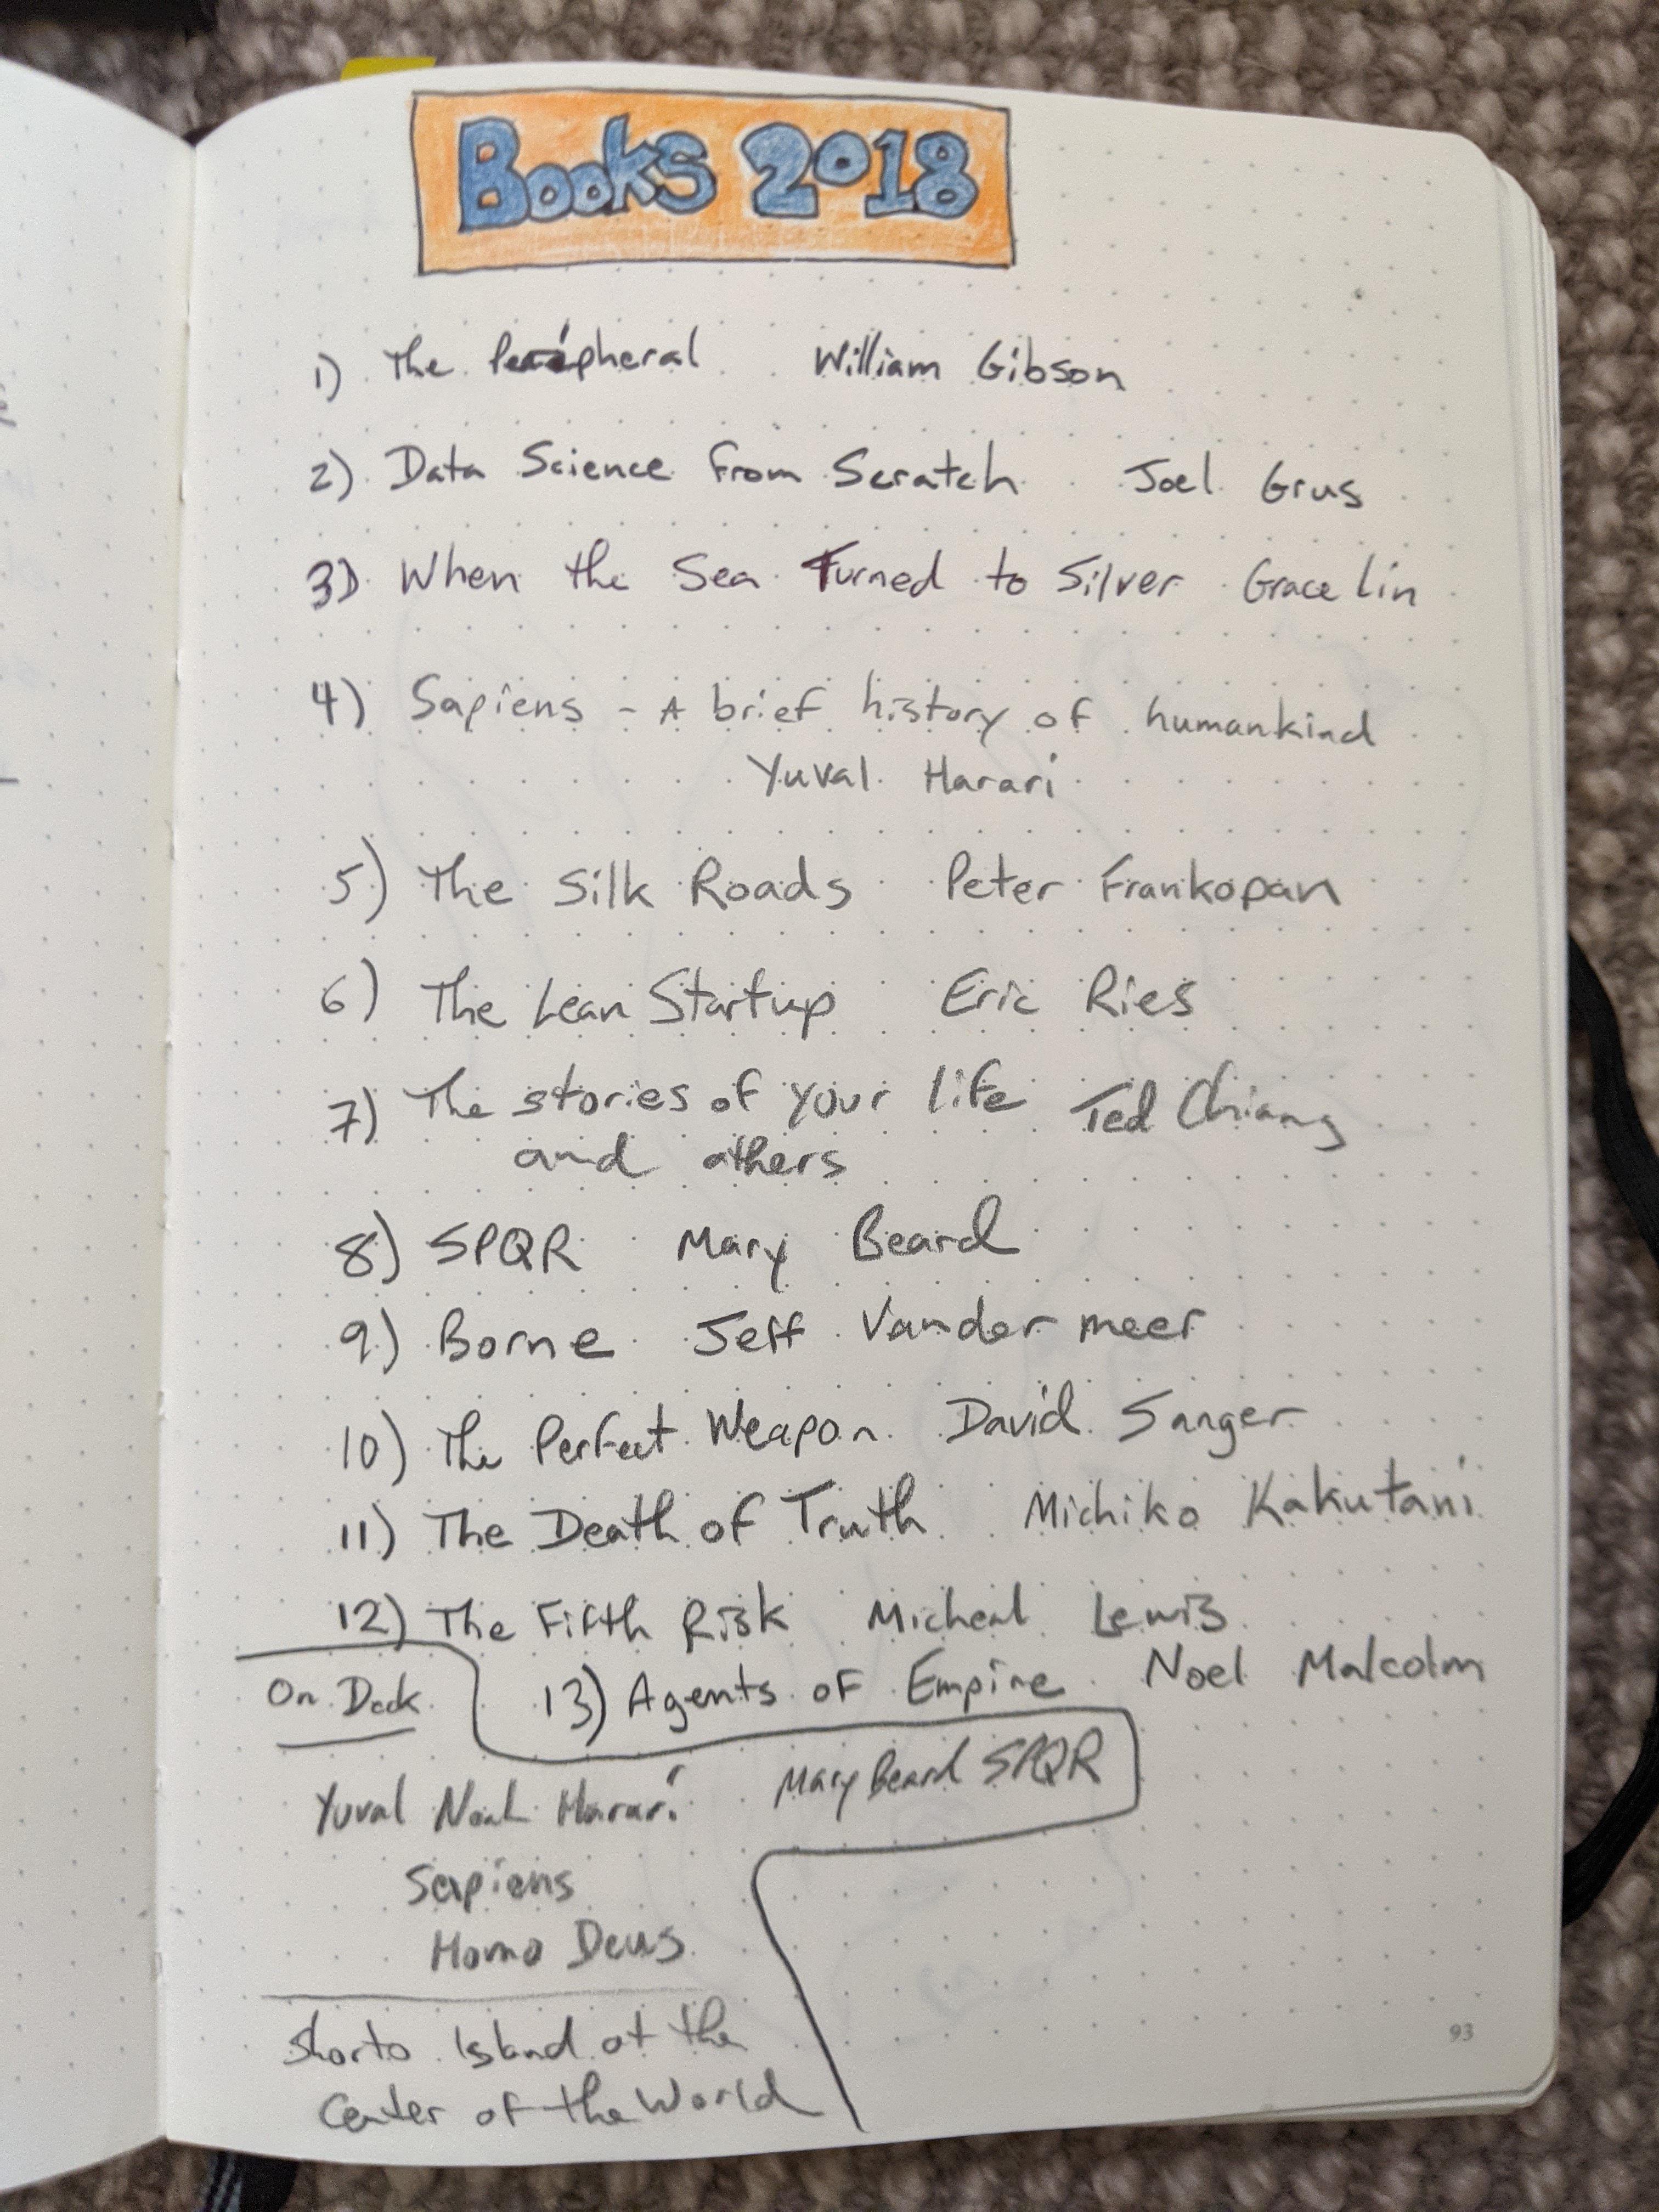 Books 2018
1) The Peripheral William Gibson
2) Data Science from Scratch Joel Grus
3) When the Sea Turned to Silver Grace Lin
4) Sapiens - A brief history of humankind
Yuval Harari
5) The Silk Roads Peter Frankopan
6) The Lean Startup Eric Ries
7) The stories of your life Ted Chiang
and others
8) SPQR Mary Beard
9) Borne Jeff Vander meer
10) The Perfect Weapon David Sanger
11) The Death of Truth Michiko Kakutani
12) The Fifth Risk Micheal Lewis
On Deck 13) Agents of Empire Noel Malcolm
Yuval Noah Harari Mary Beard SPQR
Sapiens
Homo Deus
Shorto Island at the
Center of the World
93